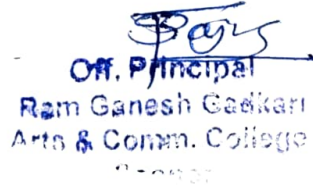 Off. Principal
Ram Ganesh Gadkari
Arts & Comm. College